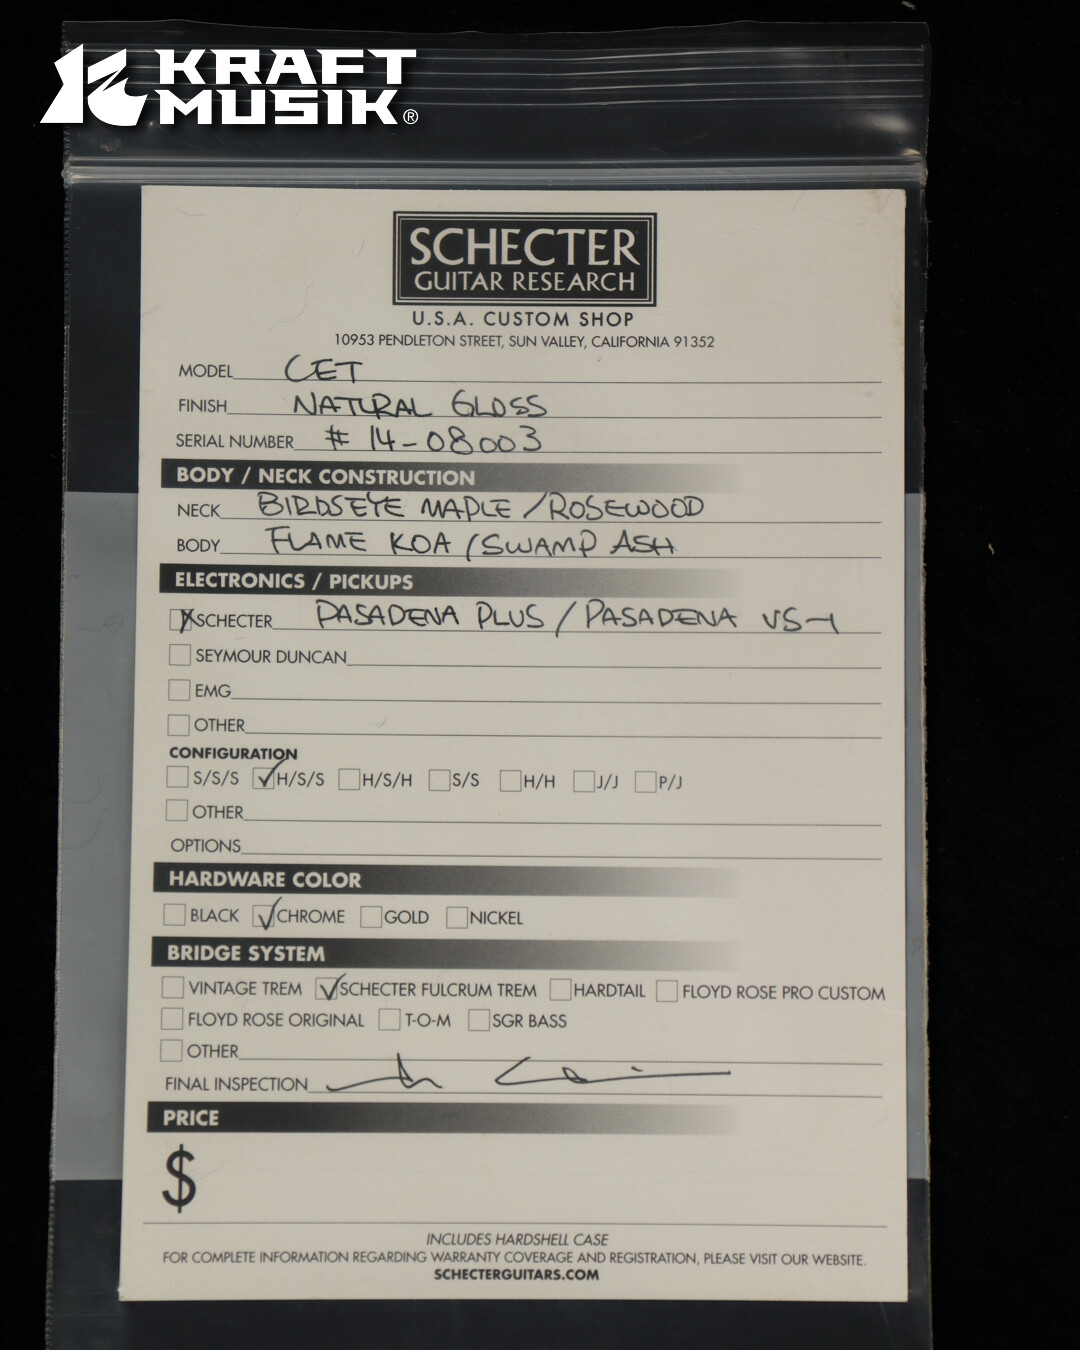 KRAFT
MUSIK®
SCHECTER
GUITAR RESEARCH
U.S.A. CUSTOM SHOP
10953 PENDLETON STREET, SUN VALLEY, CALIFORNIA 91352
MODEL CET
FINISH NATURAL GLOSS
SERIAL NUMBER # 14-08003
BODY / NECK CONSTRUCTION
NECK BIRDSEYE MAPLE / ROSEWOOD
BODY FLAME KOA / SWAMP ASH
ELECTRONICS / PICKUPS
SCHECTER PASADENA PLUS / PASADENA VS-1
SEYMOUR DUNCAN
EMG
OTHER
CONFIGURATION
S/S/S H/S/S H/S/H S/S H/H J/J P/J
OTHER
OPTIONS
HARDWARE COLOR
BLACK CHROME GOLD NICKEL
BRIDGE SYSTEM
VINTAGE TREM SCHECTER FULCRUM TREM HARDTAIL FLOYD ROSE PRO CUSTOM
FLOYD ROSE ORIGINAL T-O-M SGR BASS
OTHER
FINAL INSPECTION
PRICE
$
INCLUDES HARDSHELL CASE
FOR COMPLETE INFORMATION REGARDING WARRANTY COVERAGE AND REGISTRATION, PLEASE VISIT OUR WEBSITE.
SCHECTERGUITARS.COM